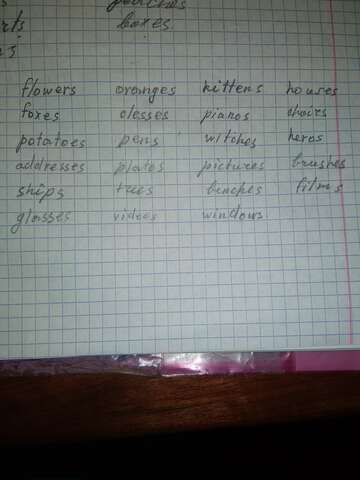 boxes.
flowers oranges kittens houses
foxes classes pianos chairs
potatoes pens witches heros
addresses plates pictures brushes
ships benches films
glasses videos windows